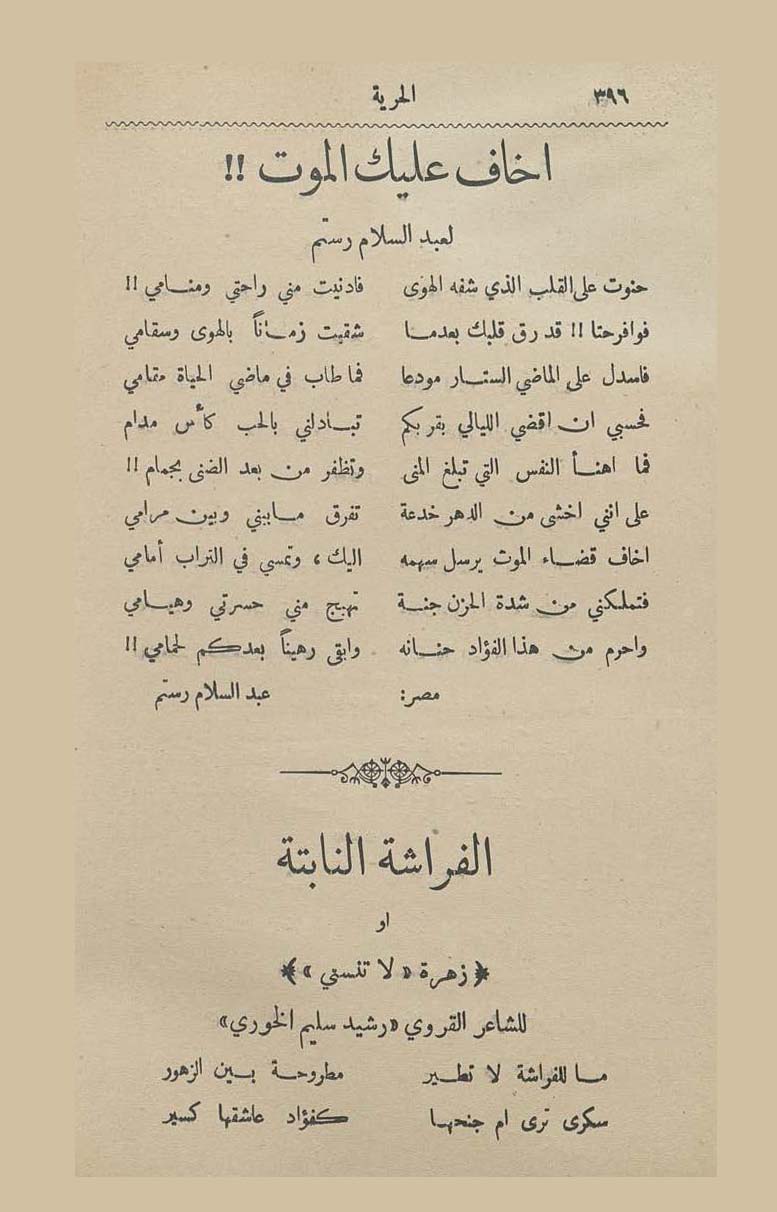 ٣٩٦ الحرية
اخاف عليك الموت !!
لعبد السلام رستم
حنوت على القلب الذي شفه الهوى فادنيت مني راحتي ومنامي !!
فوافرحتا !! قد رق قلبك بعدما شقيت زماناً بالهوى وسقامي
فاسدل على الماضي الستار مودعا فما طاب في ماضي الحياة مقامي
فحسبي ان اقضي الليالي بقربكم تبادلني بالحب كأس مدام
فما اهنأ النفس التي تبلغ المنى وتظفر من بعد الضنى بجمام !!
على انني اخشى من الدهر خدعة تفرق مابيني وبين مرامي
اخاف قضاء الموت يرسل سهمه اليك ، وتمسي في التراب أمامي
فتملكني من شدة الحزن جنة تهيج مني حسرتي وهيامي
واحرم من هذا الفؤاد حنانه وابقى رهيناً بعدكم لحمامي !!
مصر: عبد السلام رستم
الفراشة النابتة
او
﴿زهرة «لا تنسني»﴾
للشاعر القروي «رشيد سليم الخوري»
ما للفراشة لا تطير مطروحة بين الزهور
سكرى ترى ام جنحها كفؤاد عاشقها كسير